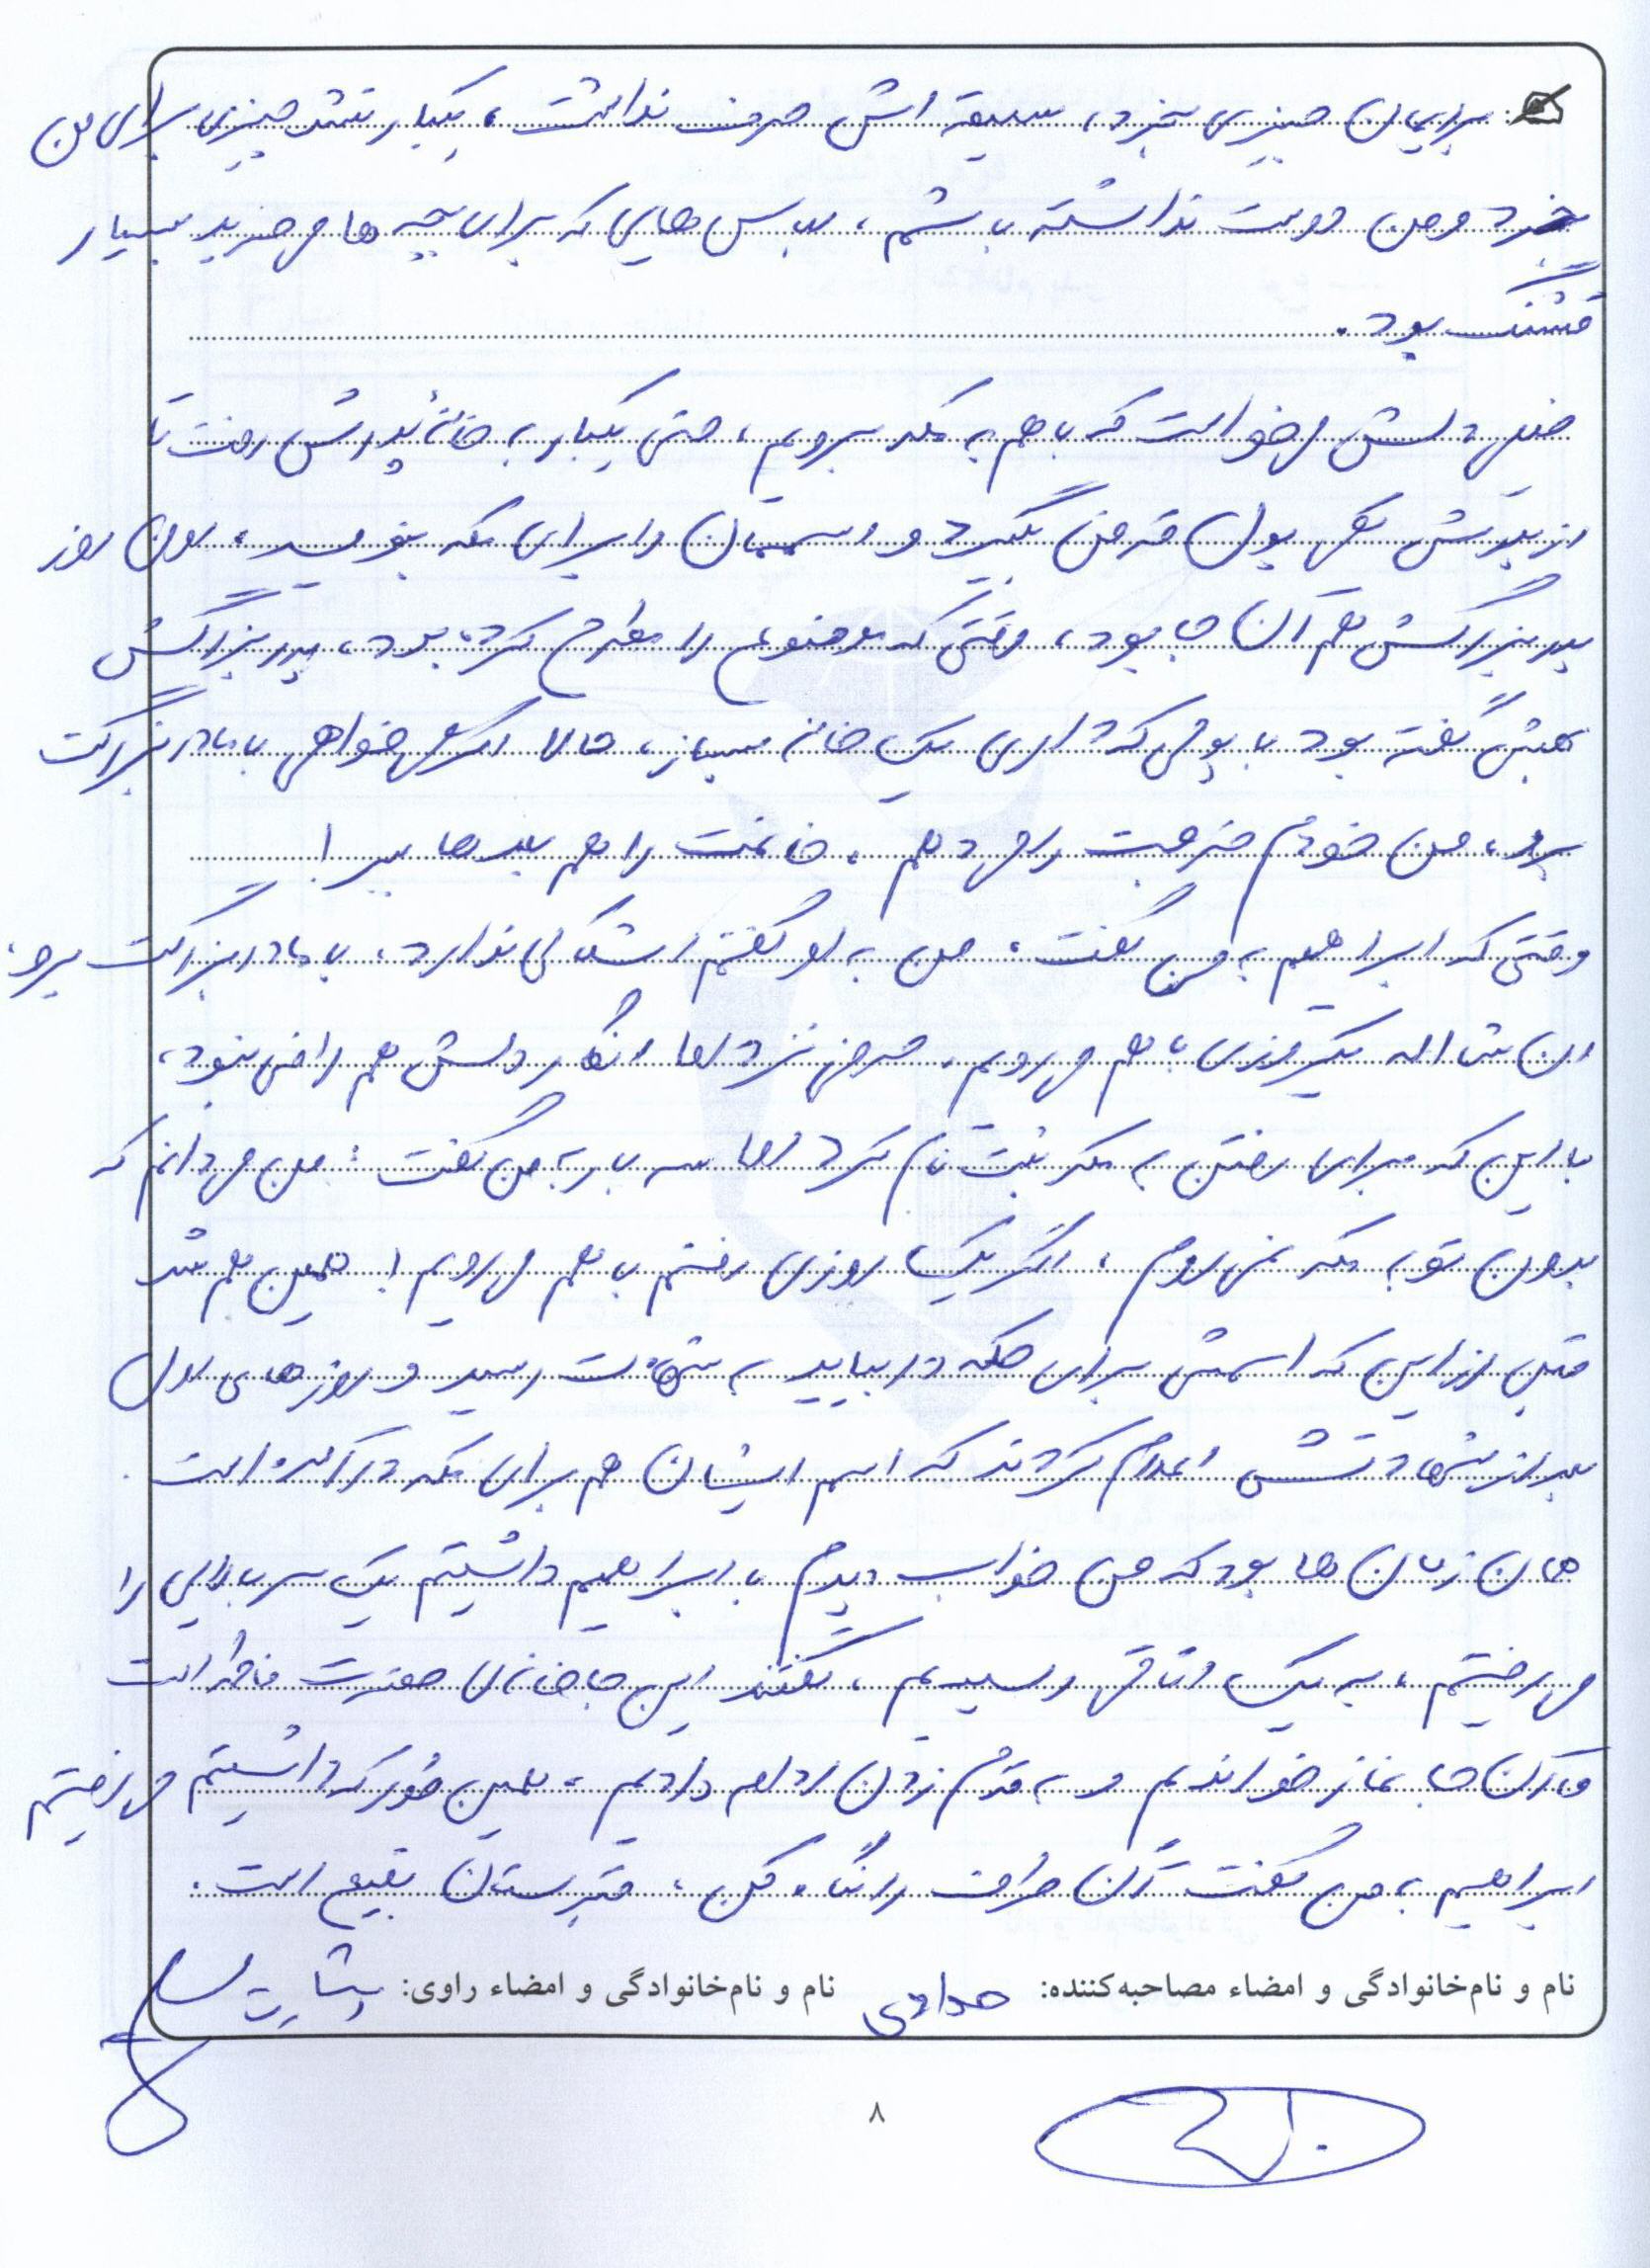 برایمان چیزی بخرد، سلیقه اش حرف نداشت، یکبار نشد چیزی برای من
بخرد و من دوست نداشته باشم، لباس هایی که برای بچه ها می خرید بسیار
قشنگ بود.
خیلی دلش می خواست که با هم به مکه برویم، حتی یکبار به خانهٔ پدرش رفت تا
از پدرش کمی پول قرض بگیرد و اسممان را برای مکه بنویسد، اون روز
پدربزرگش هم آن جا بود، وقتی که موضوع را مطرح کرده بود، پدربزرگش
بهش گفته بود با پولی که داری یک خانه بساز، حالا اگر می خواهی با مادربزرگت
برو، من خودم خرجت را می دهم، خانمت را هم بعدها ببر!
وقتی که ابراهیم به من گفت، من به او گفتم اشکالی ندارد، با مادربزرگت برو،
ان شاء اله یک روزی با هم می رویم. حرفی نزد اما انگار دلش هم راضی نبود،
با این که برای رفتن به مکه ثبت نام کرد اما سه بار به من گفت: من می دانم که
بدون تو به مکه نمی روم، اگر یک روزی رفتم با هم می رویم! همین هم شد
قبل از این که اسمش برای مکه در بیاید به شهادت رسید و روزهای اول
بعد از شهادتش اعلام کردند که اسم ایشان هم برای مکه درآمده است.
همان زمان ها بود که من خواب دیدم با ابراهیم داشتیم یک سربالایی را
می رفتیم، به یک اتاقی رسیدیم، گفتند این جا خانه ی حضرت فاطمه است
ما آن جا نماز خواندیم و به قدم زدن ادامه دادیم، همین طور که داشتیم می رفتیم
ابراهیم به من گفت آن طرف را نگاه کن، قبرستان بقیع است.
نام و نام‌خانوادگی و امضاء مصاحبه‌کننده: حدادی نام و نام‌خانوادگی و امضاء راوی:
۸